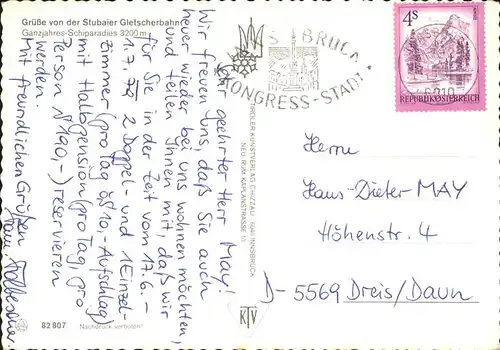 Grüße von der Stubaier Gletscherbahn
Ganzjahres-Schiparadies 3200m
Sehr geehrter Herr May!
Wir freuen uns, daß Sie auch
heuer wieder bei uns wohnen möchten,
und teilen Ihnen mit, daß wir
für Sie in der Zeit vom 17.6. –
1.7. 2 Doppel- und 1 Einzel-
zimmer (pro Tag öS 10,- Aufschlag)
mit Halbpension (pro Tag, pro
Person S 190,-) reservieren
werden.
Mit freundlichen Grüßen
82 807
Nachdruck verboten!
BRUCK
KONGRESS-STADT
TIROLER KUNSTVERLAG CHIZZALI 6040 INNSBRUCK
NEU-RUM, KAPLANSTRASSE
KTV
4S
REPUBLIK ÖSTERREICH
Herrn
Hans-Dieter MAY
Höhenstr. 4
D-5569 Dreis/Daun